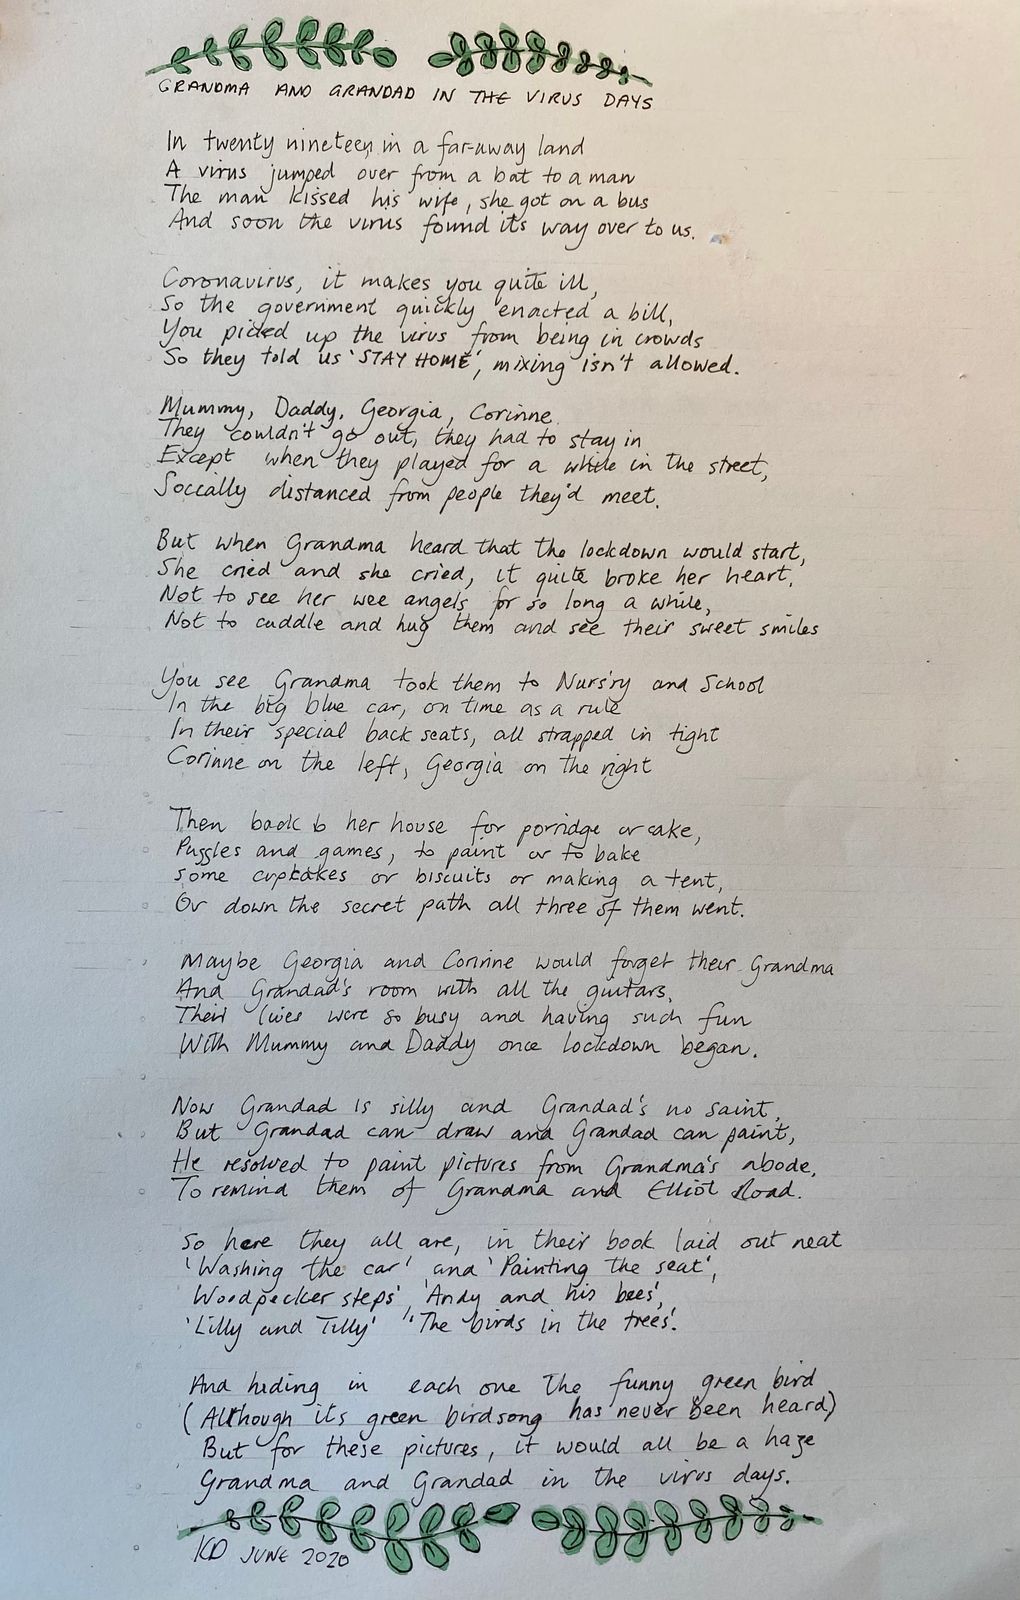 GRANDMA AND GRANDAD IN THE VIRUS DAYS
In twenty nineteen in a far-away land
A virus jumped over from a bat to a man
The man kissed his wife, she got on a bus
And soon the virus found its way over to us.
Coronavirus, it makes you quite ill,
So the government quickly enacted a bill,
You picked up the virus from being in crowds
So they told us 'STAY HOME', mixing isn't allowed.
Mummy, Daddy, Georgia, Corinne
They couldn't go out, they had to stay in
Except when they played for a while in the street,
Socially distanced from people they'd meet.
But when Grandma heard that the lockdown would start,
She cried and she cried, it quite broke her heart,
Not to see her wee angels for so long a while,
Not to cuddle and hug them and see their sweet smiles
You see Grandma took them to Nurs'ry and School
In the big blue car, on time as a rule
In their special back seats, all strapped in tight
Corinne on the left, Georgia on the right
Then back to her house for porridge or cake,
Puzzles and games, to paint or to bake
some cupcakes or biscuits or making a tent,
Or down the secret path all three of them went.
Maybe Georgia and Corinne would forget their Grandma
And Grandad's room with all the guitars,
Their lives were so busy and having such fun
With Mummy and Daddy once lockdown began.
Now Grandad is silly and Grandad's no saint,
But Grandad can draw and Grandad can paint,
He resolved to paint pictures from Grandma's abode,
To remind them of Grandma and Elliot Road.
So here they all are, in their book laid out neat
'Washing the car' and 'Painting the seat',
Woodpecker steps', 'Andy and his bees',
'Lilly and Tilly' 'The birds in the trees'.
And hiding in each one the funny green bird
(Although its green birdsong has never been heard)
But for these pictures, it would all be a haze
Grandma and Grandad in the virus days.
KD JUNE 2020